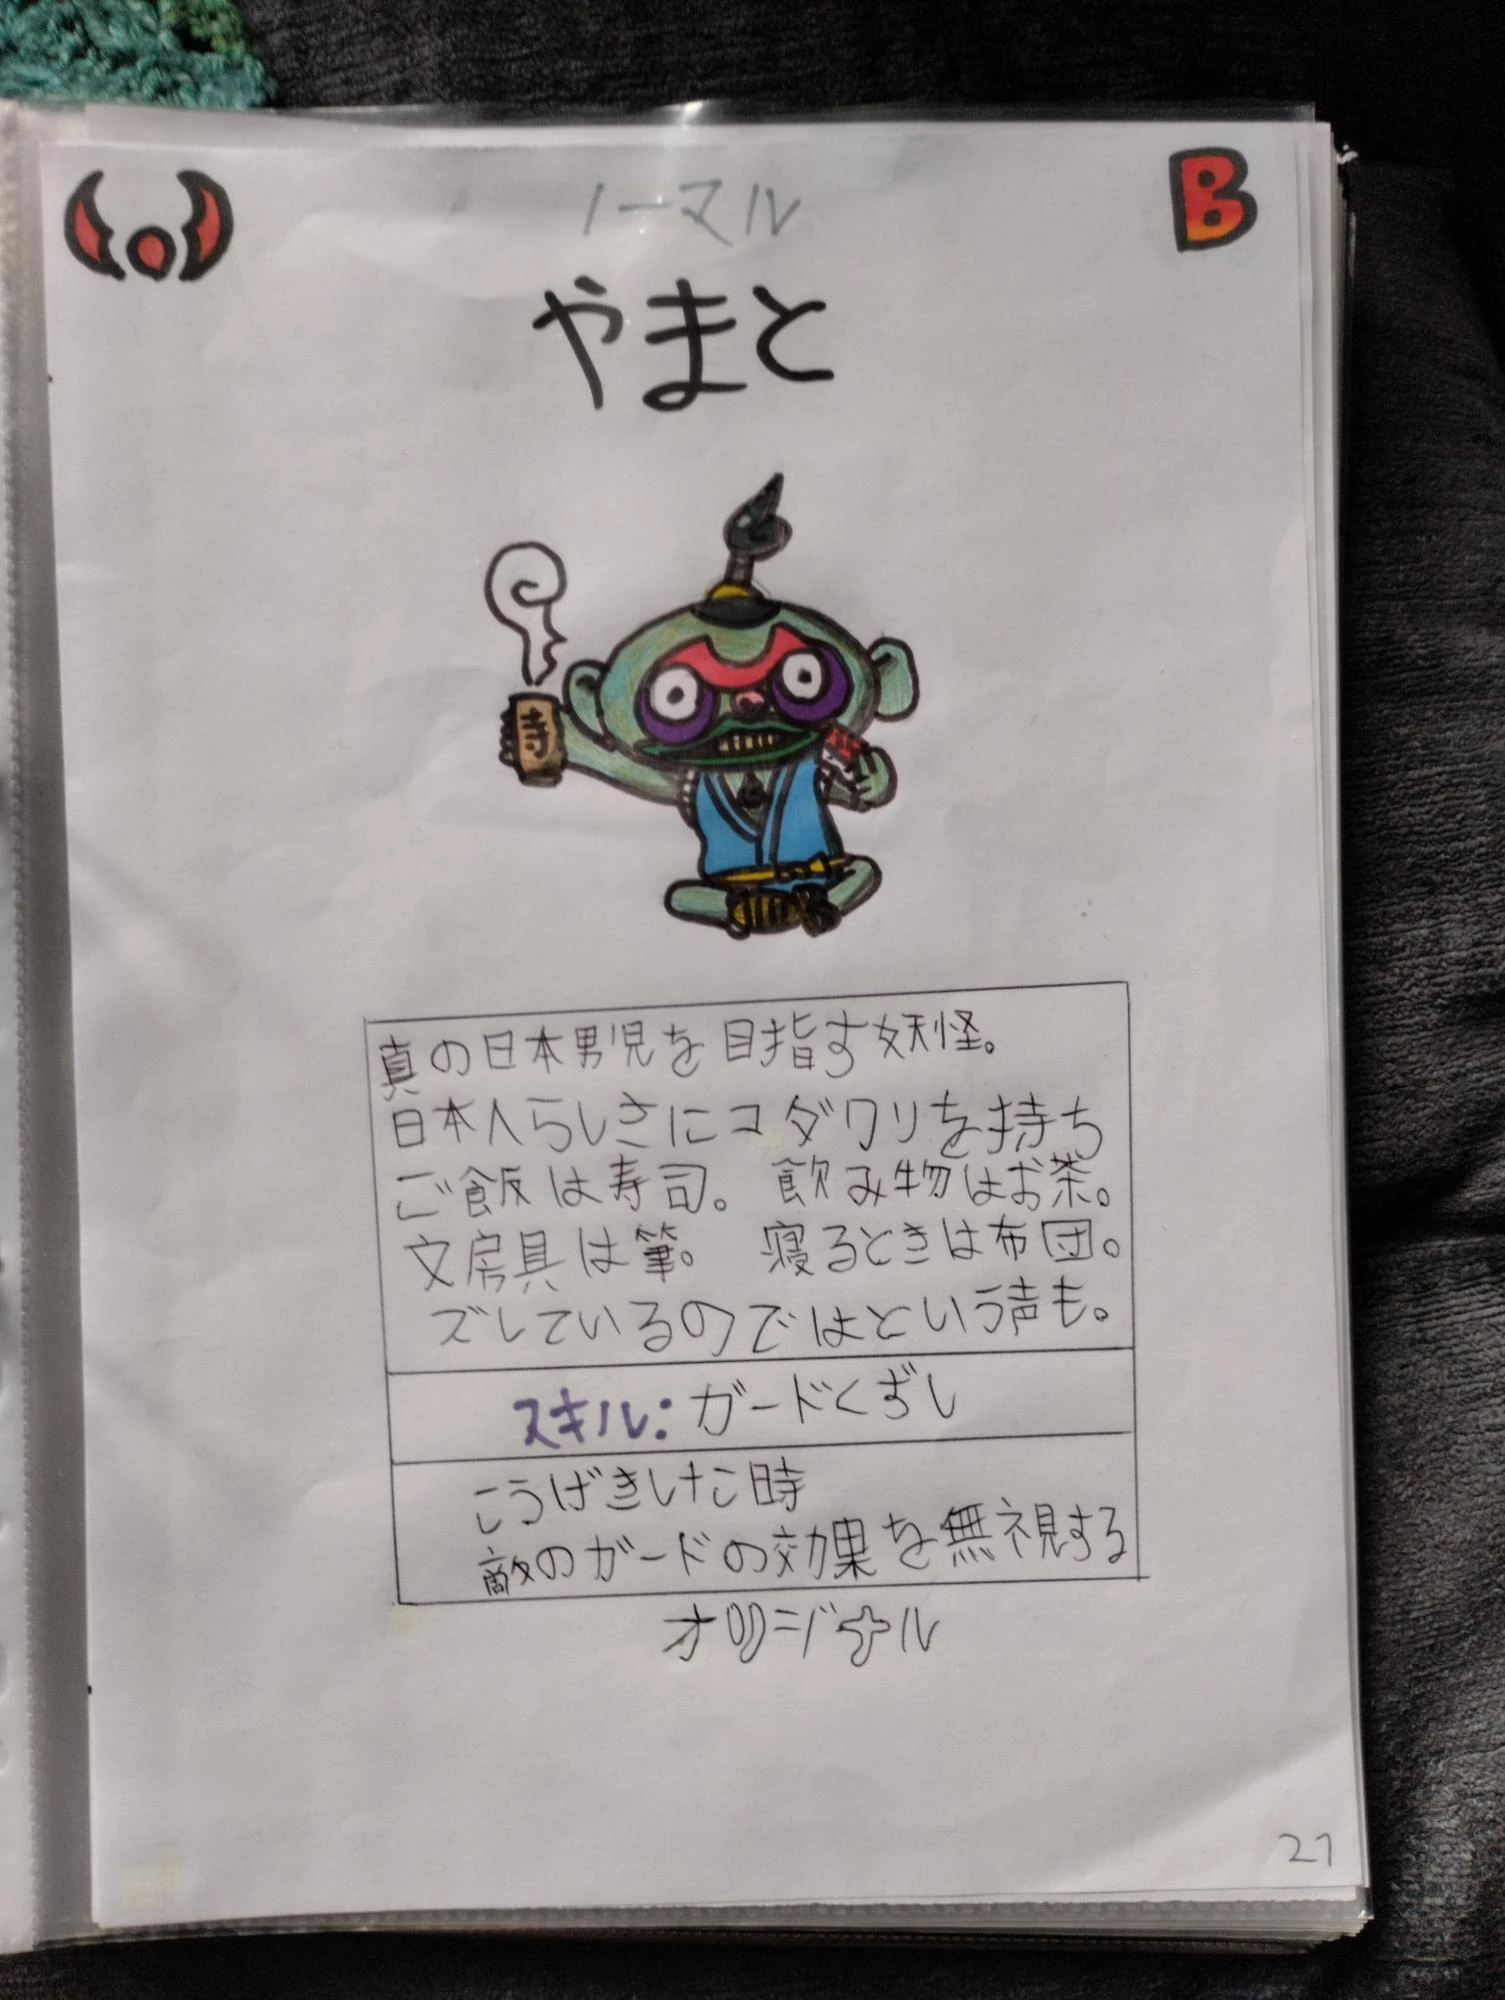 ノーマル
B
やまと
真の日本男児を目指す妖怪。
日本人らしさにコダワリを持ち
ご飯は寿司。 飲み物はお茶。
文房具は筆。 寝るときは布団。
ズレているのではという声も。
スキル:ガードくずし
こうげきした時
敵のガードの効果を無視する
オリジナル
27